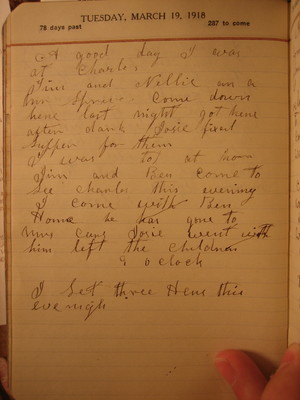 TUESDAY, MARCH 19, 1918
78 days past 287 to come
A good day I was
at Charles
Jim and Nellie an a
Mr Come down
here last night got here
after dark Josie fixed
supper for them
I was at hom
Jim and Ben come to
see charles this evening
I come with Ben
Home he has gone to
Mrs Josie went with
him left the Children
9 o clock
I Set three Hens this
evenigh